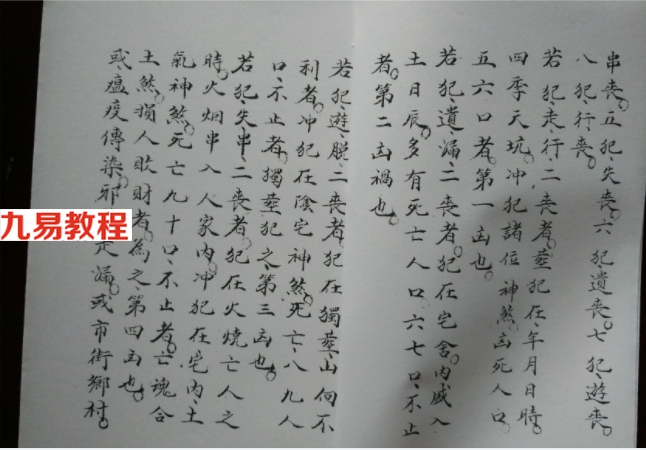 串丧。五犯失丧。六犯遺丧。七犯遊丧。
八犯行丧。
若犯走行二丧者。塟犯在年月日時
四季天坑。冲犯諸位神煞。凶死人口
五六口者。第一凶也。
若犯遺漏二丧者。犯在宅舍。内或入
土日辰。多有死亡人口六七口。不止
者。第二凶禍也。
若犯遊脱二丧者。犯在獨塟。山向不
利者。冲犯在陰宅神煞。死亡八九人
口。不止者。獨塟犯之。第三凶也。
若犯失串二丧者。犯在火燒亡人之
時。火烟串入人家内。冲犯在宅内土
氣神煞。死亡九十口。不止者。亡魂合
土煞。損人敗財者。為之第四凶也。
或瘟疫傳染。邪 走漏。或市街鄉村。
九易教程